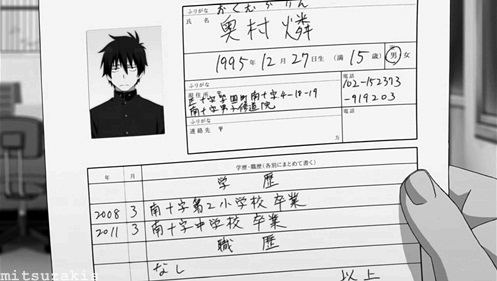 ふりがな おくむら りん
氏名 奥村 燐
1995年12月27日生（満 15歳）男 女
ふりがな
現住所 〒
正十字学園町南十字4-18-19
南十字男子修道院
電話
102-152373
-919203
ふりがな
連絡先 〒 方
電話
年 月 学歴・職歴（各別にまとめて書く）
学 歴
2008 3 南十字第2小学校 卒業
2011 3 南十字中学校 卒業
職 歴
なし
以上
mitsuzakis